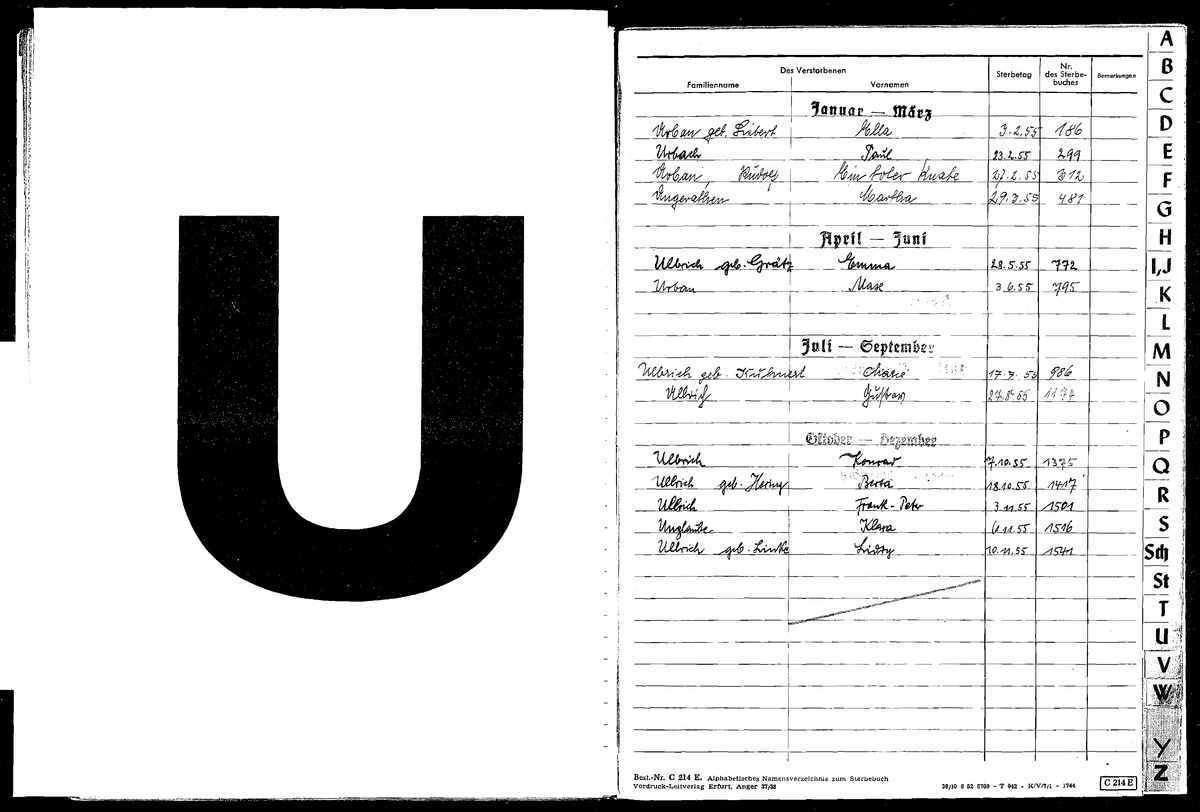 U
Des Verstorbenen
Familienname Vornamen Sterbetag Nr. des Sterbe-buches Bemerkungen
Januar — März
Urban geb. Liebert Ella 3.2.55 186
Urbach Paul 23.2.55 299
Urban, Rudolf Ein toter Knabe 27.2.55 312
Ungerathen Martha 29.3.55 481
April — Juni
Ullrich geb. Grätz Emma 28.5.55 772
Urban Max 3.6.55 795
Juli — September
Ulbrich geb. Kuhnert 17.7.55 986
Ullrich Gustav 27.8.55 1174
Oktober — Dezember
Ulbrich Konrad 7.10.55 1375
Ullrich geb. Hering Berta 18.10.55 1417
Ullrich Frank-Peter 3.11.55 1501
Unglaube Klara 6.11.55 1516
Ullrich geb. Linke 10.11.55 1541
Best.-Nr. C 214 E. Alphabetisches Namensverzeichnis zum Sterbebuch
Vordruck-Leitverlag Erfurt, Anger 37/38
C 214 E
A
B
C
D
E
F
G
H
I,J
K
L
M
N
O
P
Q
R
S
Sch
St
T
U
V
W
Y
Z